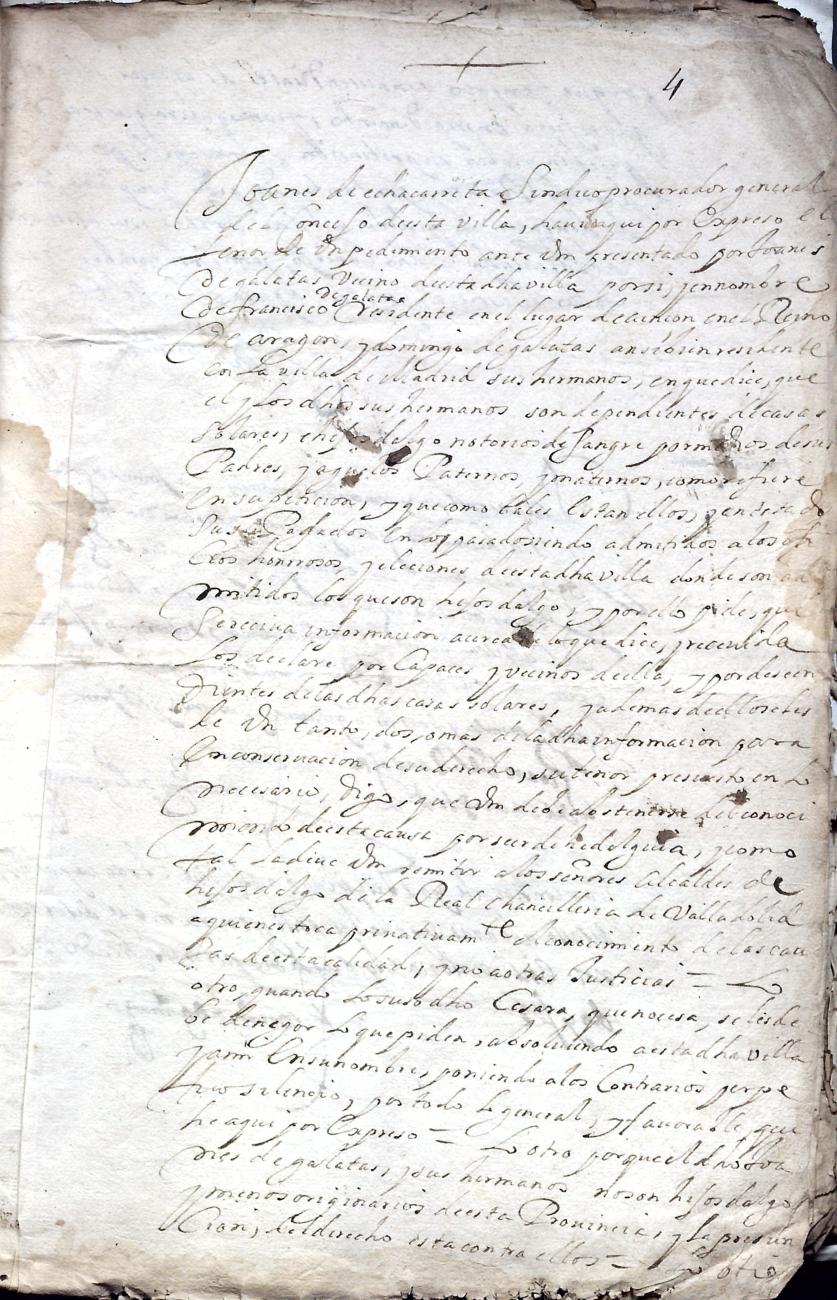 4
Joanes de echacarreta Sindico procurador general
del Conçejo de esta villa, haviendo aqui por Expreso el
tenor de Un pedimiento ante Vm presentado por Joanes
De galatas Vecino de esta dha villa por si, y en nombre
De francisco De galatas Residente en el lugar de en el Reino
De aragon, y domingo de galatas ansi bien residente
en La villa de Madrid sus hermanos, en que dice, que
el y Los dhos sus hermanos son dependientes de casas
solares, e hijos dalgo notorios de sangre por medios de sus
Padres, y aguelos Paternos, y maternos, como refiere
en su peticion, y que como tales estan ellos, y
sus Pasados en lo pasado siendo admitidos a los ofi
cios honrrosos, y eleciones de esta dha villa donde son ad
mitidos los que son hijos dalgo, y por ello pide, que
se reciva informacion acerca de lo que dice, y recevida
Los declare por Capaces y vecinos de ella, y por decen
dientes de las dhas casas solares, y ademas de ello se les
de Un tanto, dos, o mas de la dha informacion para
En conservacion de su derecho, su tenor presupuesto en lo
necesario, Digo, que Vm debe abstenerse del conoci
miento de esta causa por ser de hidalguia, y como
tal La dive Vm remitir a los señores Alcaldes de
hijos dalgo de la Real chancilleria de Valladolid
a quienes toca privativamte el conocimiento de las cau
sas de esta calidad, y no a otras Justicias = Lo
otro, quando Lo susodho Cesara, que no cesa, se les de
be denegar Lo que piden, absolviendo a esta dha villa
y a mi En su nombre, poniendo a los Contrarios perpe
tuo silencio, por todo Lo general, y favorable, que
he aqui por Expreso = Lo otro porque el dho Joa
nes de galatas, y sus hermanos no son hijos dalgo
y menos originarios de esta Provincia, y La presun
cion, del derecho esta contra ellos = Lo otro